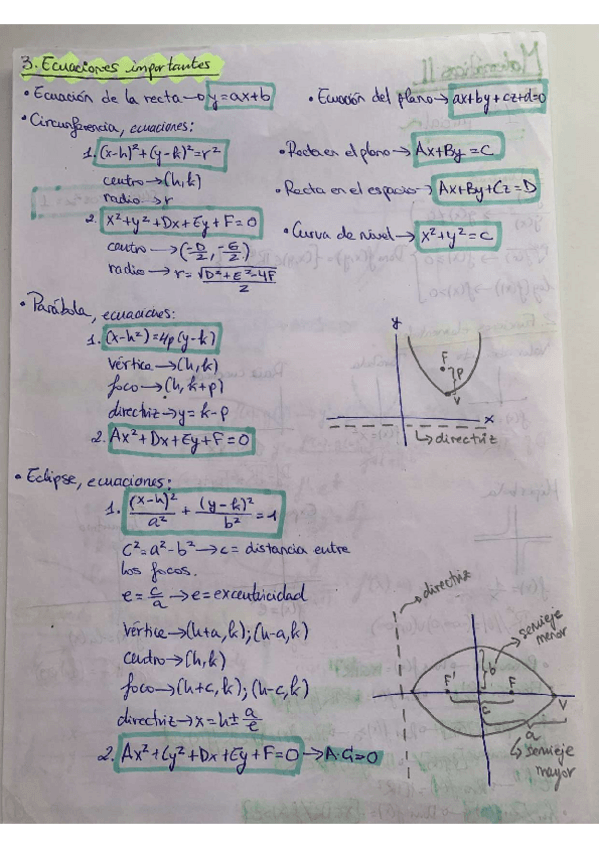 3. Ecuaciones importantes
• Ecuación de la recta → y=ax+b
• Ecuación del plano → ax+by+cz+d=0
• Circunferencia, ecuaciones:
1. (x-h)²+(y-k)²=r²
centro → (h,k)
radio → r
2. x²+y²+Dx+Ey+F=0
centro → (-D/2, -E/2)
radio → r= √D²+E²-4F / 2
• Recta en el plano → Ax+By=C
• Recta en el espacio → Ax+By+Cz=D
• Curva de nivel → x²+y²=c
• Parábola, ecuaciones:
1. (x-h²)=4p(y-k)
vértice → (h,k)
foco → (h,k+p)
directriz → y=k-p
2. Ax²+Dx+Ey+F=0
y
F
p
V
x
↳ directriz
• Eclipse, ecuaciones:
1. (x-h)²/a² + (y-k)²/b² =1
c²=a²-b² → c= distancia entre
los focos.
e= c/a → e=excentricidad
vértice → (h+a,k);(h-a,k)
centro → (h,k)
foco → (h+c,k);(h-c,k)
directriz → x=h± a/e
2. Ax²+Cy²+Dx+Ey+F=0 → A·C>0
→ directriz
semieje
menor
b
F'
F
c
V
a
↳ semieje
mayor